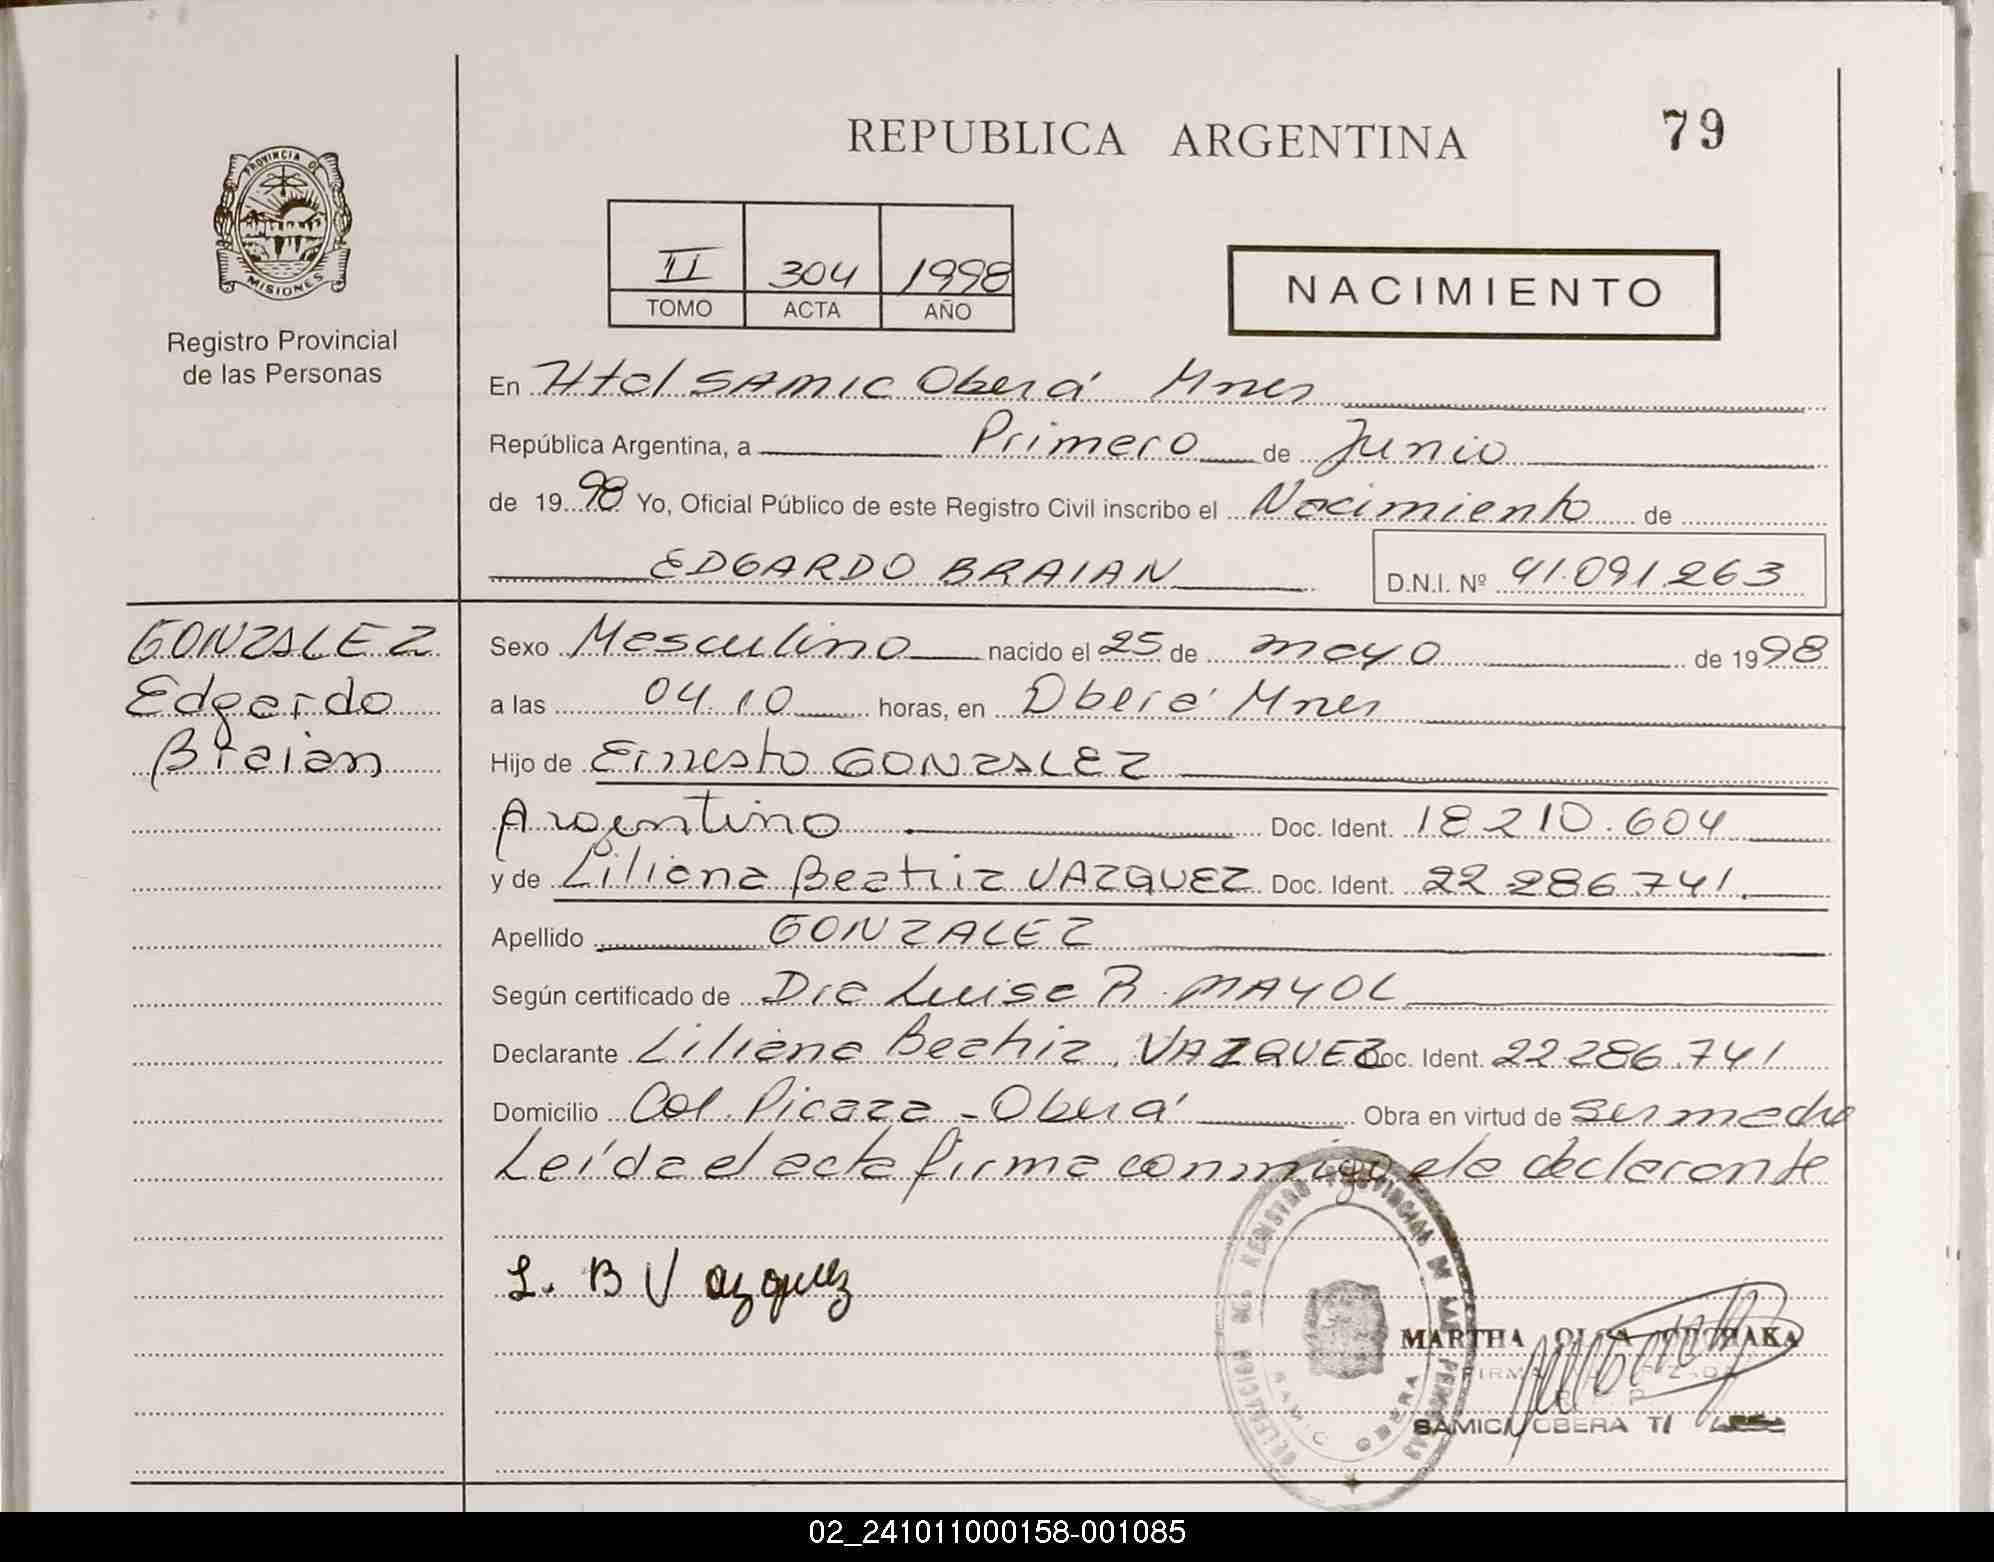 REPUBLICA ARGENTINA
79
PROVINCIA DE
MISIONES
Registro Provincial
de las Personas
II 304 1998
TOMO ACTA AÑO
NACIMIENTO
En Htal SAMIC Oberá Mnes
República Argentina, a Primero de Junio
de 1998 Yo, Oficial Público de este Registro Civil inscribo el Nacimiento de
EDGARDO BRAIAN D.N.I. Nº 41.091.263
GONZALEZ
Edgardo
Braian
Sexo Masculino nacido el 25 de mayo de 1998
a las 04.10 horas, en Oberá Mnes
Hijo de Ernesto GONZALEZ
Argentino Doc. Ident. 18.210.604
y de Liliana Beatriz VAZQUEZ Doc. Ident. 22.286.741
Apellido GONZALEZ
Según certificado de Dra Luisa R. MAYOL
Declarante Liliana Beatriz VAZQUEZ Doc. Ident. 22.286.741
Domicilio Col. Picaza - Oberá Obra en virtud de ser madre
Leída el acta firma conmigo la declarante
L. B Vazquez
DELEGACION DEL REGISTRO PROVINCIAL DE LAS PERSONAS
SAMIC OBERA
MARTHA OLGA
SAMIC OBERA
02_241011000158-001085